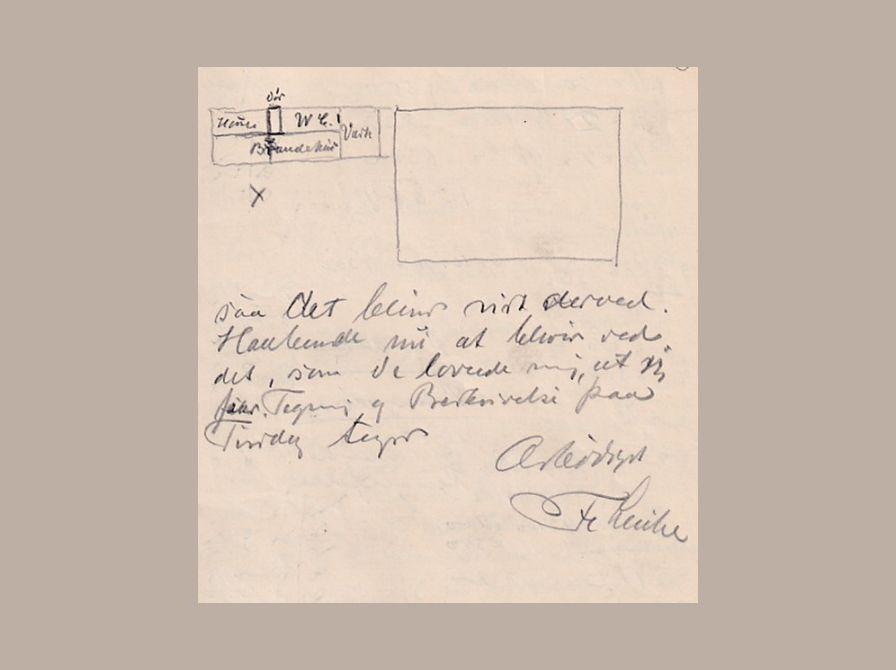 Dør
W C.
Vask
Brændekur
X
saa det bliver nist derved.
Haabende nu at bliver ved
det, som De lovede mig, at vi
faar Tegning og Beskrivelse paa
Tirsdag
Ærbødigst
Fr